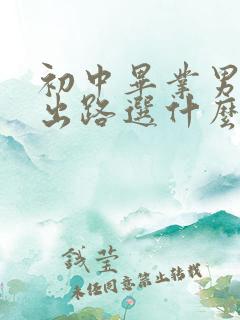 初中畢業男
出路選什麼
錢瑩
未经同意禁止转载